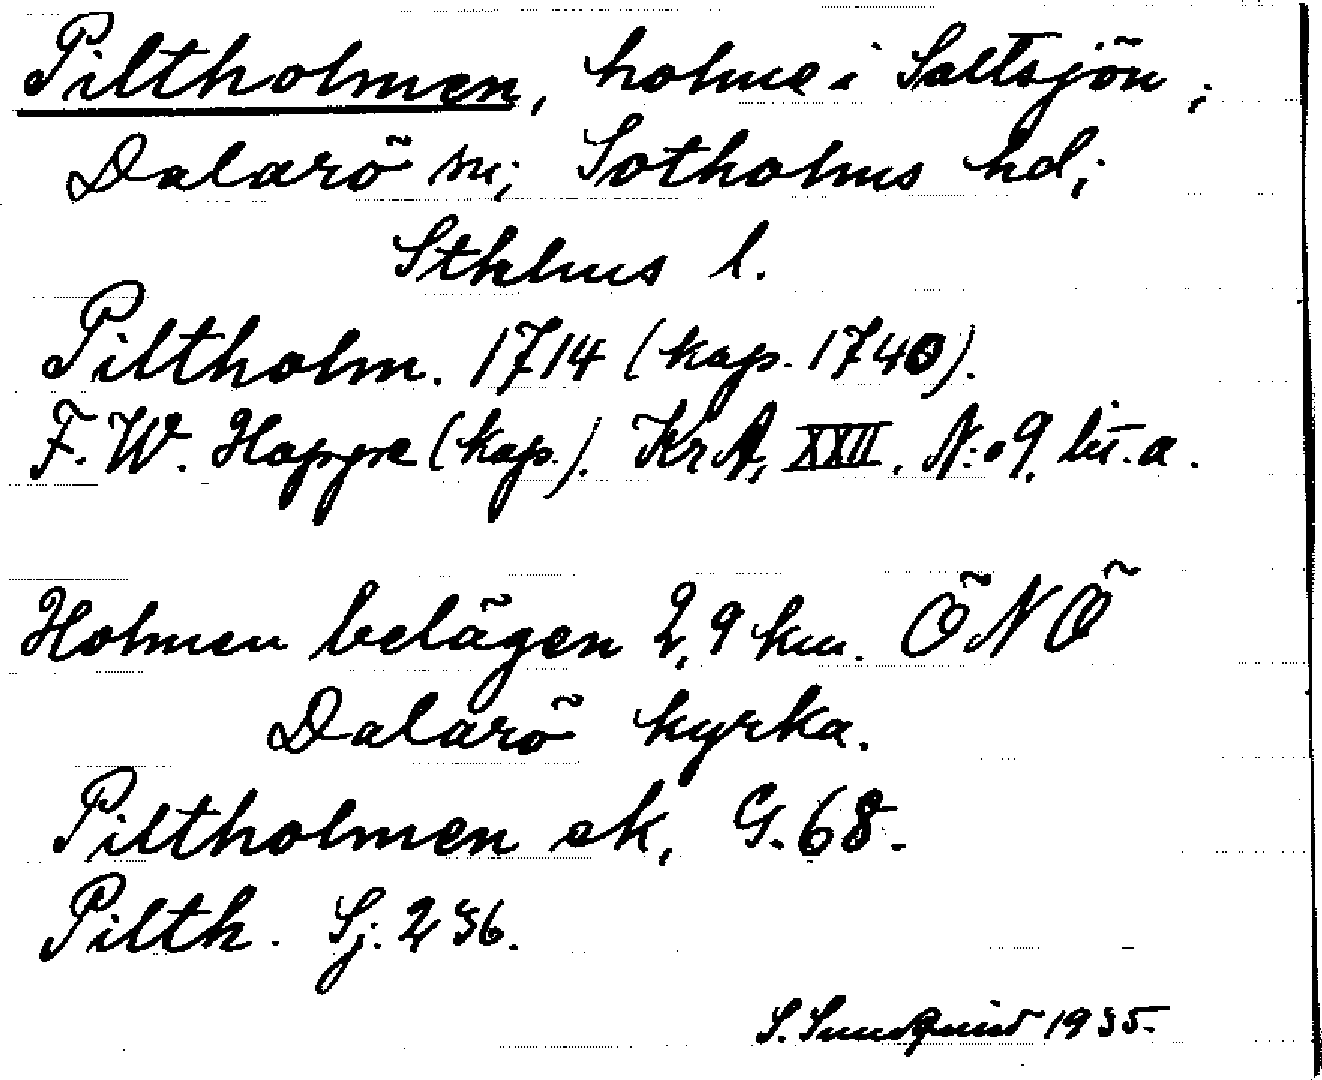 Piltholmen, holme i Saltsjön;
Dalarö sn; Sotholms hd;
Sthlms l.
Piltholm. 1714 (kap. 1740).
F. W. Happe (kap.). KrA, XXII, N:o 9, lit. a.
Holmen belägen 2,9 km. ÖNÖ
Dalarö kyrka.
Piltholmen ek, G. 68.
Pilth. Sj. 236.
S. Sundquist 1935.